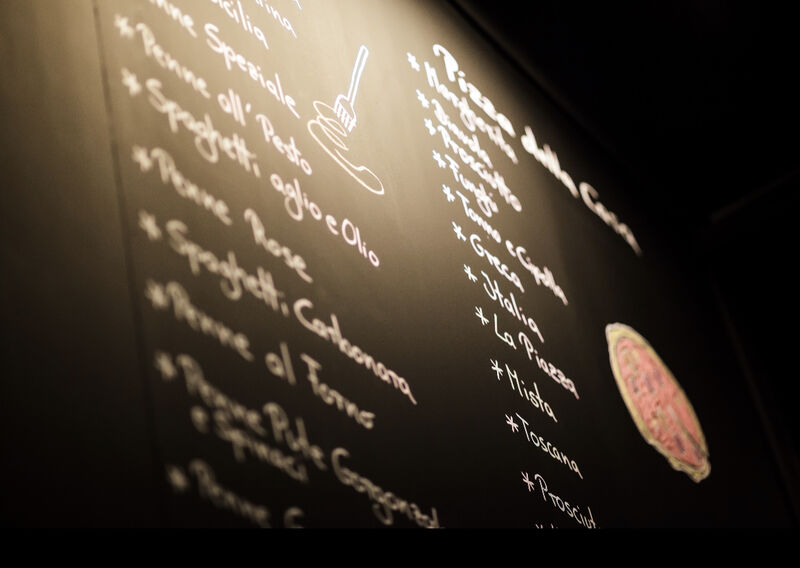 * Penne Speziale
* Penne all' Pesto
* Spaghetti, aglio e Olio
* Penne Rose
* Spaghetti, Carbonara
* Penne al Forno
* Penne Pute Gorgonz
e Spinaci
* Penne
Pizza della Casa
* Margherita
* Prosciutto
* Funghi
* Tonno e Cipolla
* Greca
* Italia
* La Piazza
* Mista
* Toscana
* Prosciut